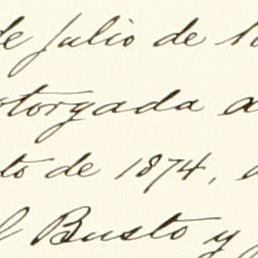 de Julio de 1
otorgada a
to de 1874,
l Busto y